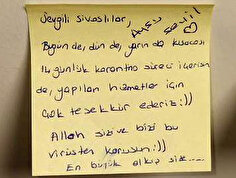 Sevgili Sivaslılar,
Bugün de, dün de, yarın da kısacası
14 günlük karantina süreci içerisin
de, yapılan hizmetler için
çok teşekkür ederiz :))
Allah sizi ve bizi bu
virüsten korusun :))
En büyük alkış size.....